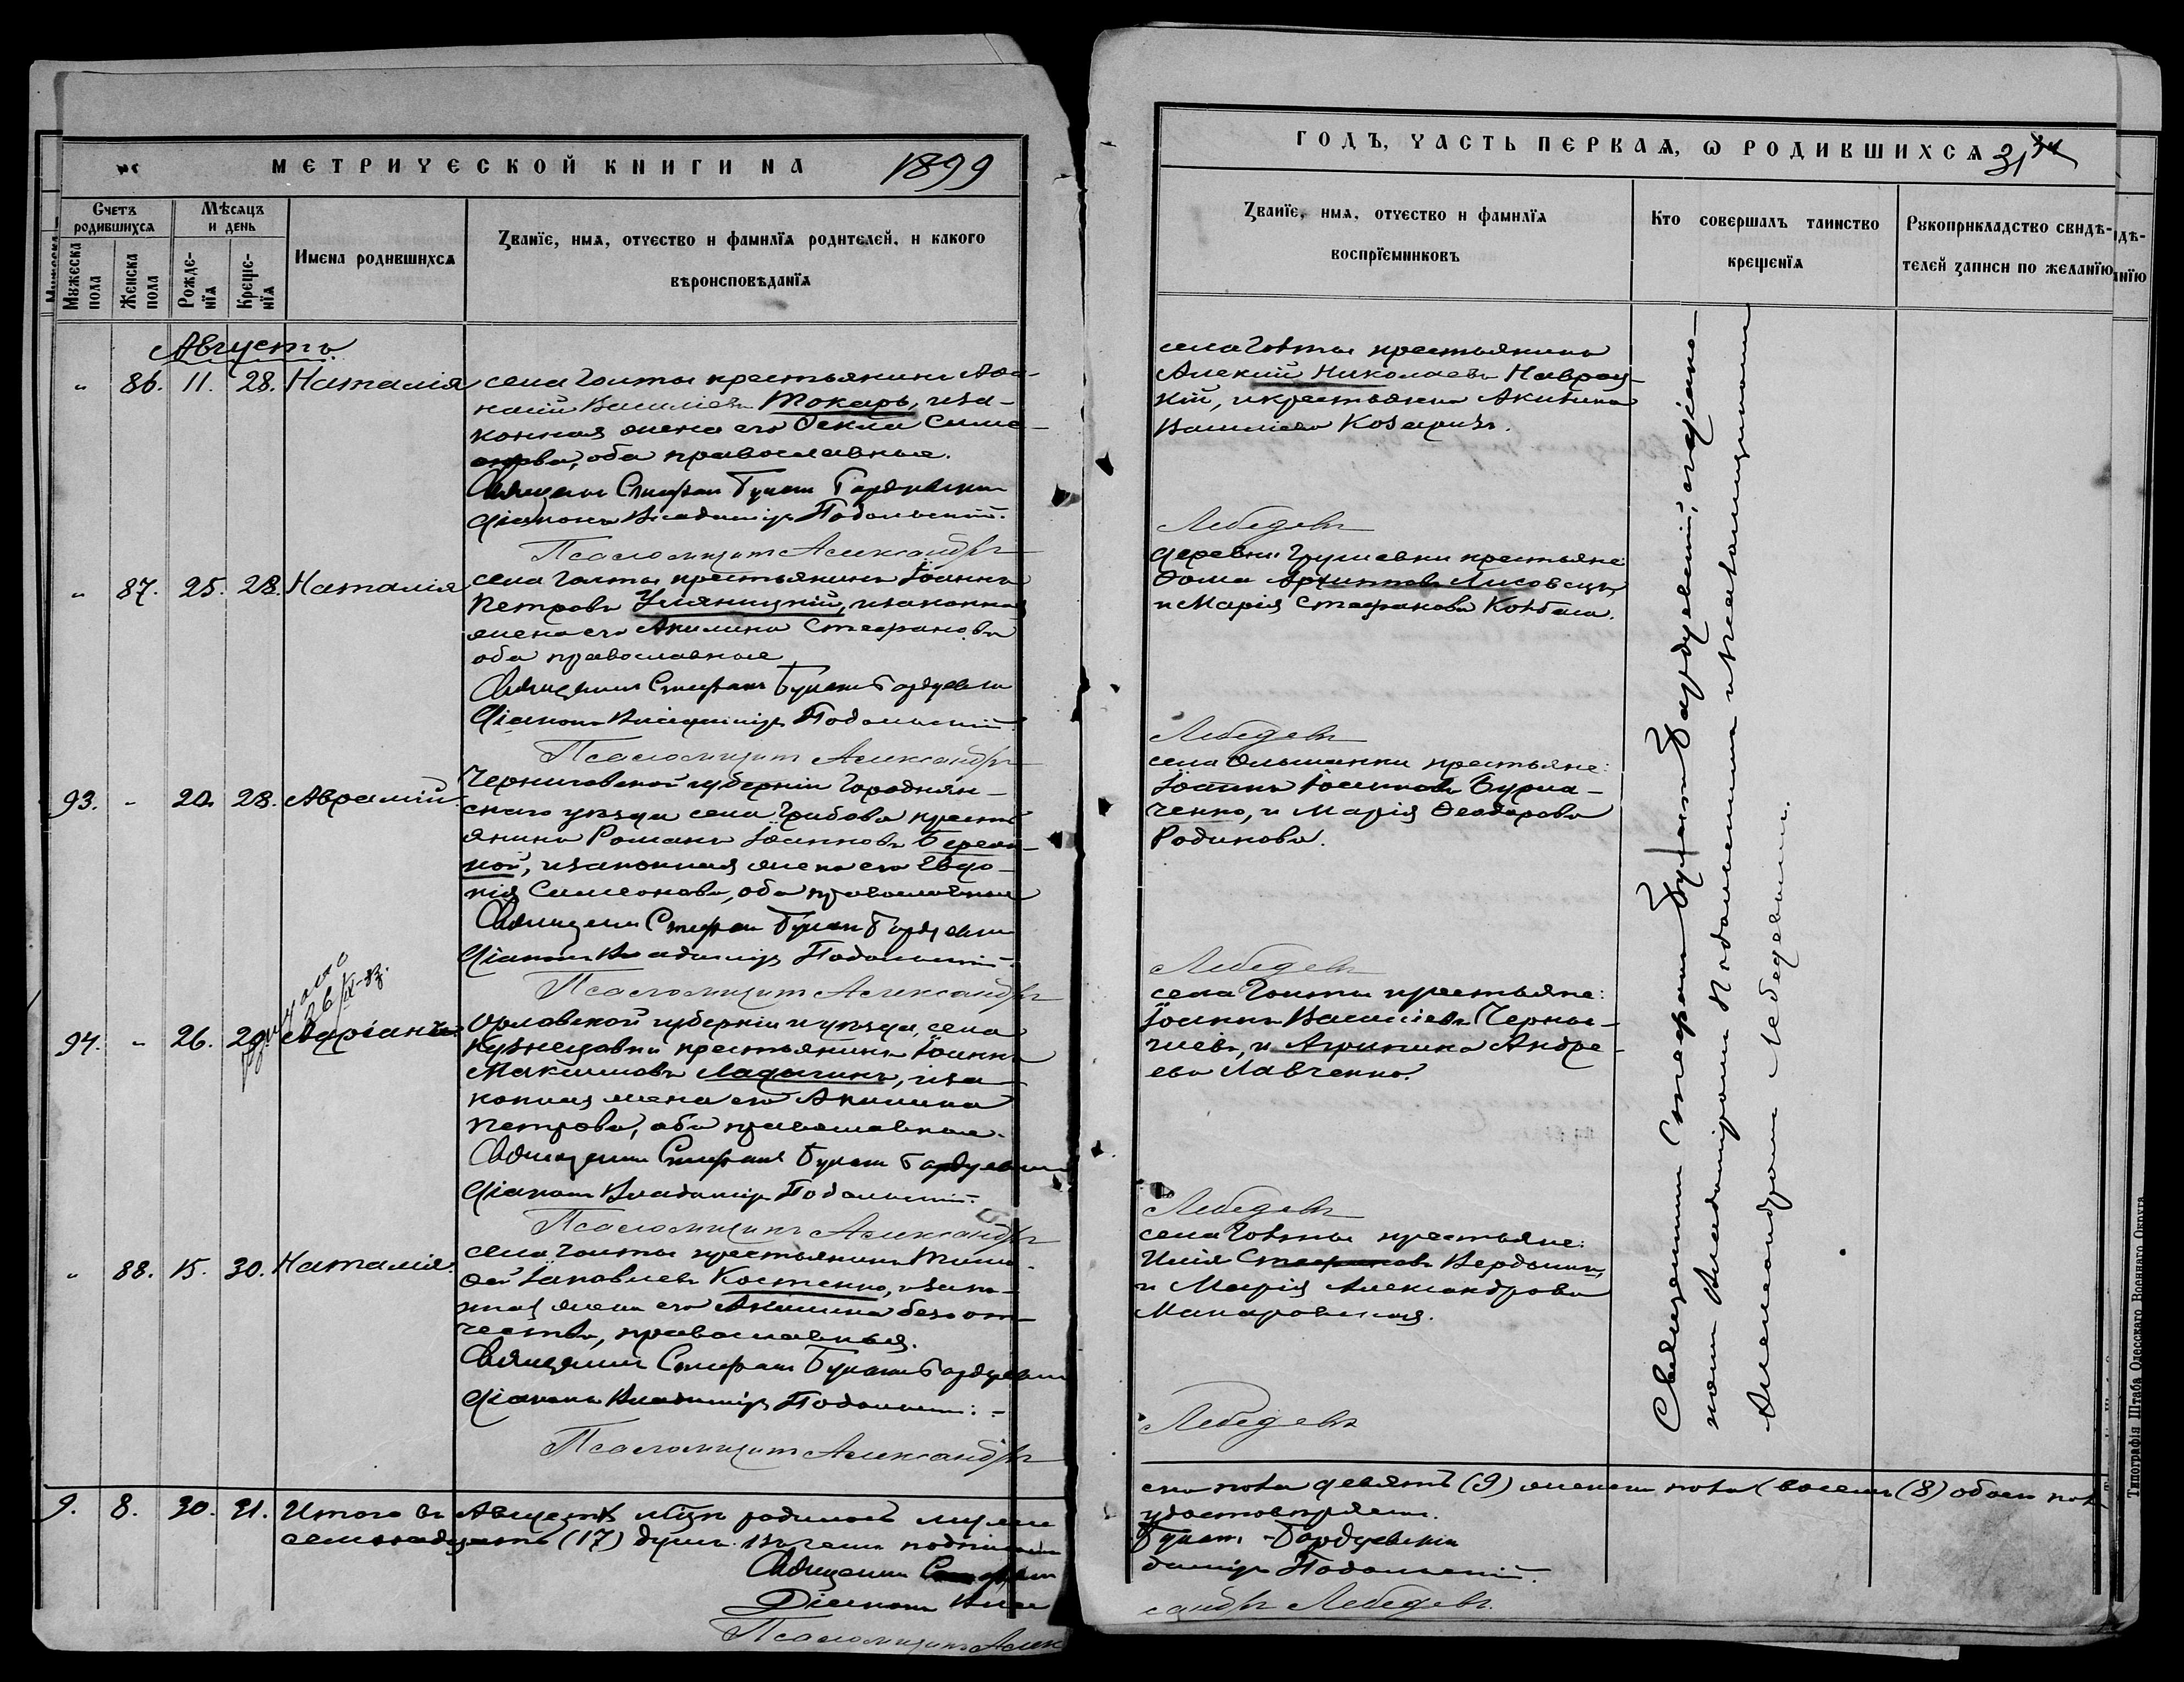 МЕТРИЧЕСКОЙ КНИГИ НА 1899
Счетъ родившихся
Мѣсяцъ и день
Мужеска пола
Женска пола
Рожде-нїя
Креще-нїя
Имена родившихся
Званїе, имя, отчество и фамилїя родителей, и какого
вѣроисповѣданїя
Августъ.
" 86. 11. 28. Наталія
села Голты крестьянинъ Афа-
насій Василіевъ Токарь, и за-
конная жена его Ѳекла Симе-
онова, оба православные.
Священникъ Стефанъ Букатъ Барду
Діаконъ Владиміръ Подольскій.
Псаломщикъ Александръ
" 87. 25. 28. Наталія
села Голты крестьянинъ Іоаннъ
Петровъ Уляницкій, и законная
жена его Акилина Стефанова
оба православные
Священникъ Стефанъ Букатъ
Діаконъ Владиміръ Подольскій.
Псаломщикъ Александръ
93. " 20. 28. Аврамій.
Черниговской губерніи Городнян-
скаго уѣзда села Грибова кресть
янинъ Романъ Іоанновъ
ной, и законная жена его Евдо-
кія Симеонова, оба православные
Священникъ Стефанъ Букатъ
Діаконъ Владиміръ Подольскій.
Псаломщикъ Александръ
94. " 26. 29. Адріанъ
26/IX-
Орловской губерніи и уѣзда, села
Кузнецовки крестьянинъ Іоаннъ
Максимовъ Ладыгинъ, и за-
конная жена его Акилина
Петрова, оба православные.
Священникъ Стефанъ Букатъ
Діаконъ Владиміръ Подольскій.
Псаломщикъ Александръ
" 88. 15. 30. Наталія.
села Голты крестьянинъ Тимо-
фей Іаковлевъ Костенко, и закон-
ная жена его Акилина безъ от-
чества, православныя.
Священникъ Стефанъ Букатъ
Діаконъ Владиміръ Подольскій.
Псаломщикъ Александръ
9. 8. 30. 31. Итого въ Августѣ мѣсяцѣ родилось муже
семнадцать (17) душъ. въ чемъ подписомъ
Священникъ Стефанъ
Діаконъ Вла
Псаломщикъ Алек
ГОДЪ, ЧАСТЬ ПЕРВАЯ, Ѡ РОДИВШИХСЯ 31
Званїе, имя, отчество и фамилїя
воспрїемниковъ
Кто совершалъ таинство
крещенїя
Рукоприкладство свидѣ-
телей записи по желанїю
села Голты крестьянинъ
Алексій Николаевъ Навроц-
кій, и крестьянка Акилина
Василіева
Лебедевъ
деревни Грушевки крестьяне:
Ѳома Архиповъ Лисовецъ,
и Марія Стефанова
Лебедевъ
села Ольшанки крестьяне:
Іоаннъ Іосифовъ Бурла-
ченко, и Марія Ѳеодорова
Родикова.
Лебедевъ
села Голты крестьяне:
Іоаннъ Василіевъ Черны-
шевъ, и Агрипина Андре-
ева Лавченко.
Лебедевъ
села Голты крестьяне:
Илія Стефановъ
и Марія Александрова
Макаровская.
Лебедевъ
Священникъ Стефанъ Букатъ
кономъ Владиміромъ Подольскимъ и псаломщикомъ
Александромъ Лебедевымъ.
ска пола девять (9) женска пола восемь (8) обоего пола
удостовѣряемъ.
Букатъ
диміръ Подольскій.
сандръ Лебедевъ.
Типографія Штаба Одесскаго Военнаго Округа